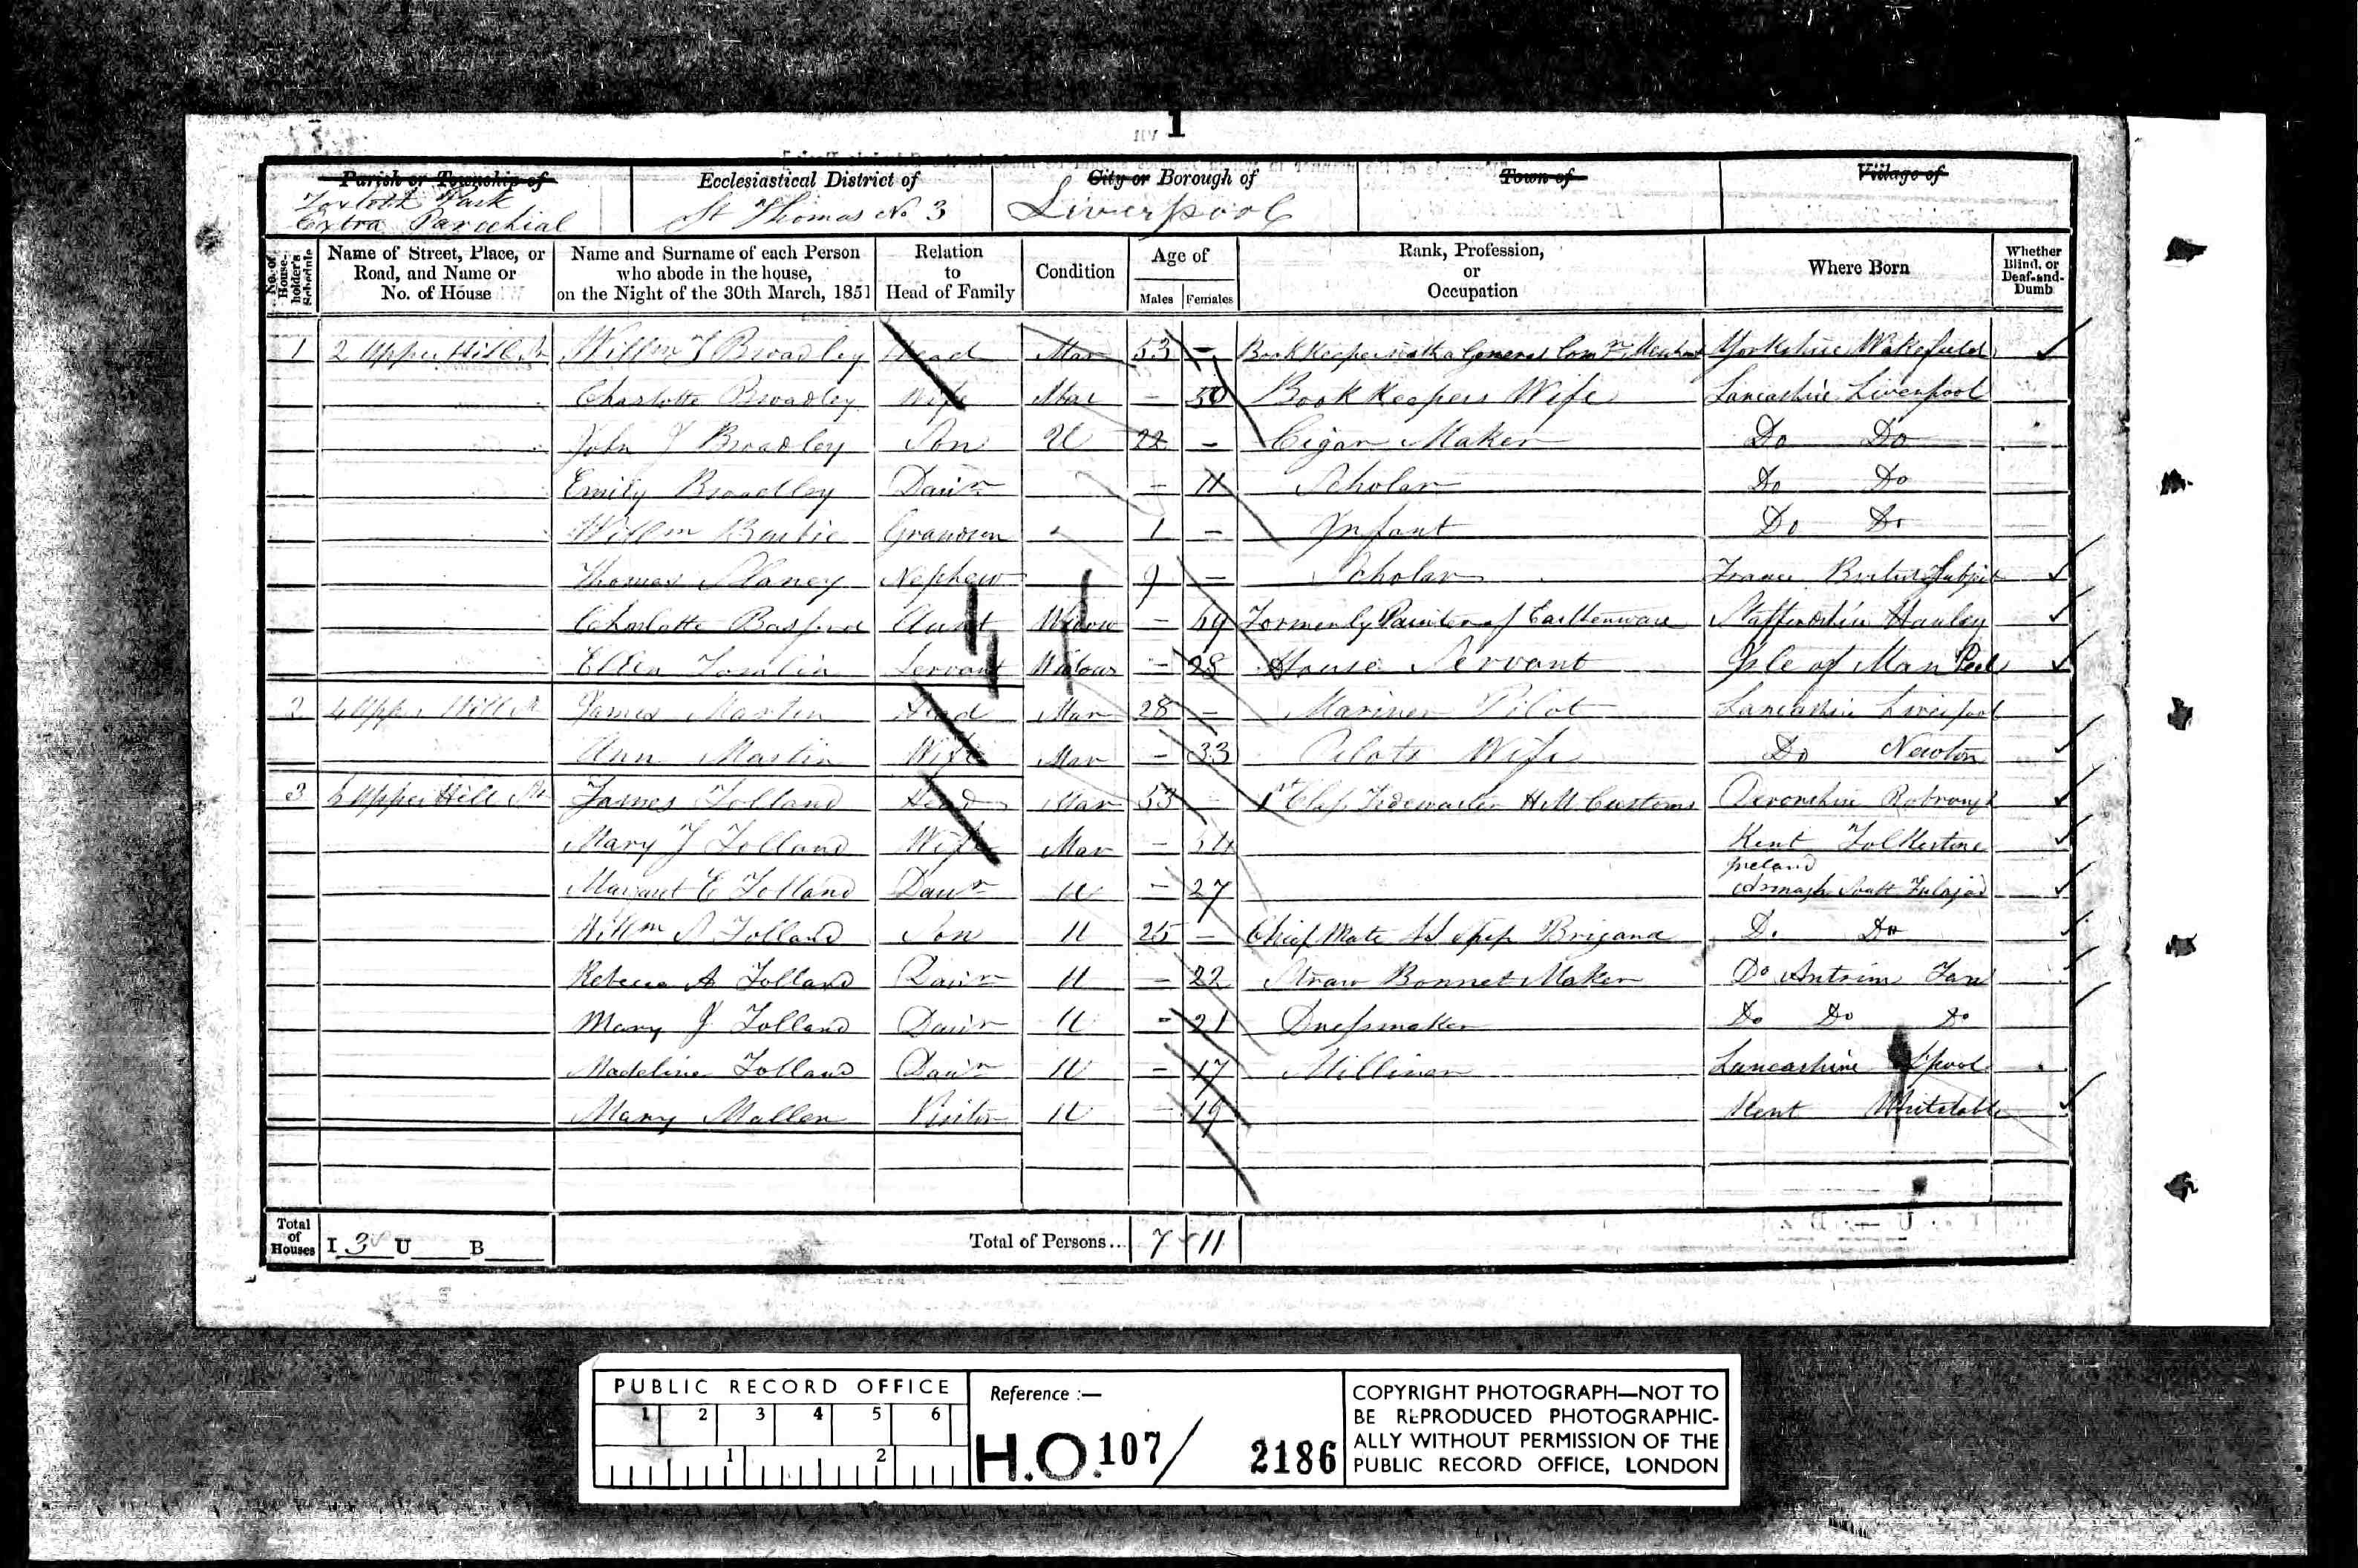 1
Parish or Township of
Toxteth Park
Extra Parochial
Ecclesiastical District of
St Thomas No 3
City or Borough of
Liverpool
Town of
Village of
No. of House-holder's Schedule
Name of Street, Place, or Road, and Name or No. of House
Name and Surname of each Person who abode in the house, on the Night of the 30th March, 1851
Relation to Head of Family
Condition
Age of
Males Females
Rank, Profession, or Occupation
Where Born
Whether Blind, or Deaf-and-Dumb
1 2 Upper Hill St Willm J Broadley Head Mar 53 - Book Keeper with a General Comn Merchant Yorkshire Wakefield
Charlotte Broadley Wife Mar - 50 Book Keepers Wife Lancashire Liverpool
John J Broadley Son U 22 - Cigar Maker Do Do
Emily Broadley Daur - 11 Scholar Do Do
Willm Grandson 1 - Infant Do Do
Thomas Nephew 9 - Scholar France British Subject
Charlotte Basford Aunt Widow - 69 Formerly Painter of Earthenware Staffordshire Hanley
Ellen Tomlin Servant Widow - 28 House Servant Isle of Man Peel
2 4 Upper Hill St James Martin Head Mar 28 - Mariner Pilot Lancashire Liverpool
Ann Martin Wife Mar - 33 Pilots Wife Do Newton
3 6 Upper Hill St James Folland Head Mar 53 - 1st Class Tidewaiter H M Customs Devonshire
Mary J Folland Wife Mar - 54 Kent Folkestone
Margaret E Folland Daur U - 27 Ireland Armagh
Willm Folland Son U 25 - Chief Mate Ship Brigand Do Do
Rebecca A Folland Daur U - 22 Straw Bonnet Maker Do Antrim
Mary J Folland Daur U - 21 Dressmaker Do Do Do
Madeline Folland Daur U - 17 Milliner Lancashire L'pool
Mary Mallen Visitor U - 19 Kent Whitstable
Total of Houses I 3 U B Total of Persons... 7 11
PUBLIC RECORD OFFICE
1 2 3 4 5 6
1 2
Reference :—
H.O. 107/ 2186
COPYRIGHT PHOTOGRAPH—NOT TO
BE REPRODUCED PHOTOGRAPHIC-
ALLY WITHOUT PERMISSION OF THE
PUBLIC RECORD OFFICE, LONDON